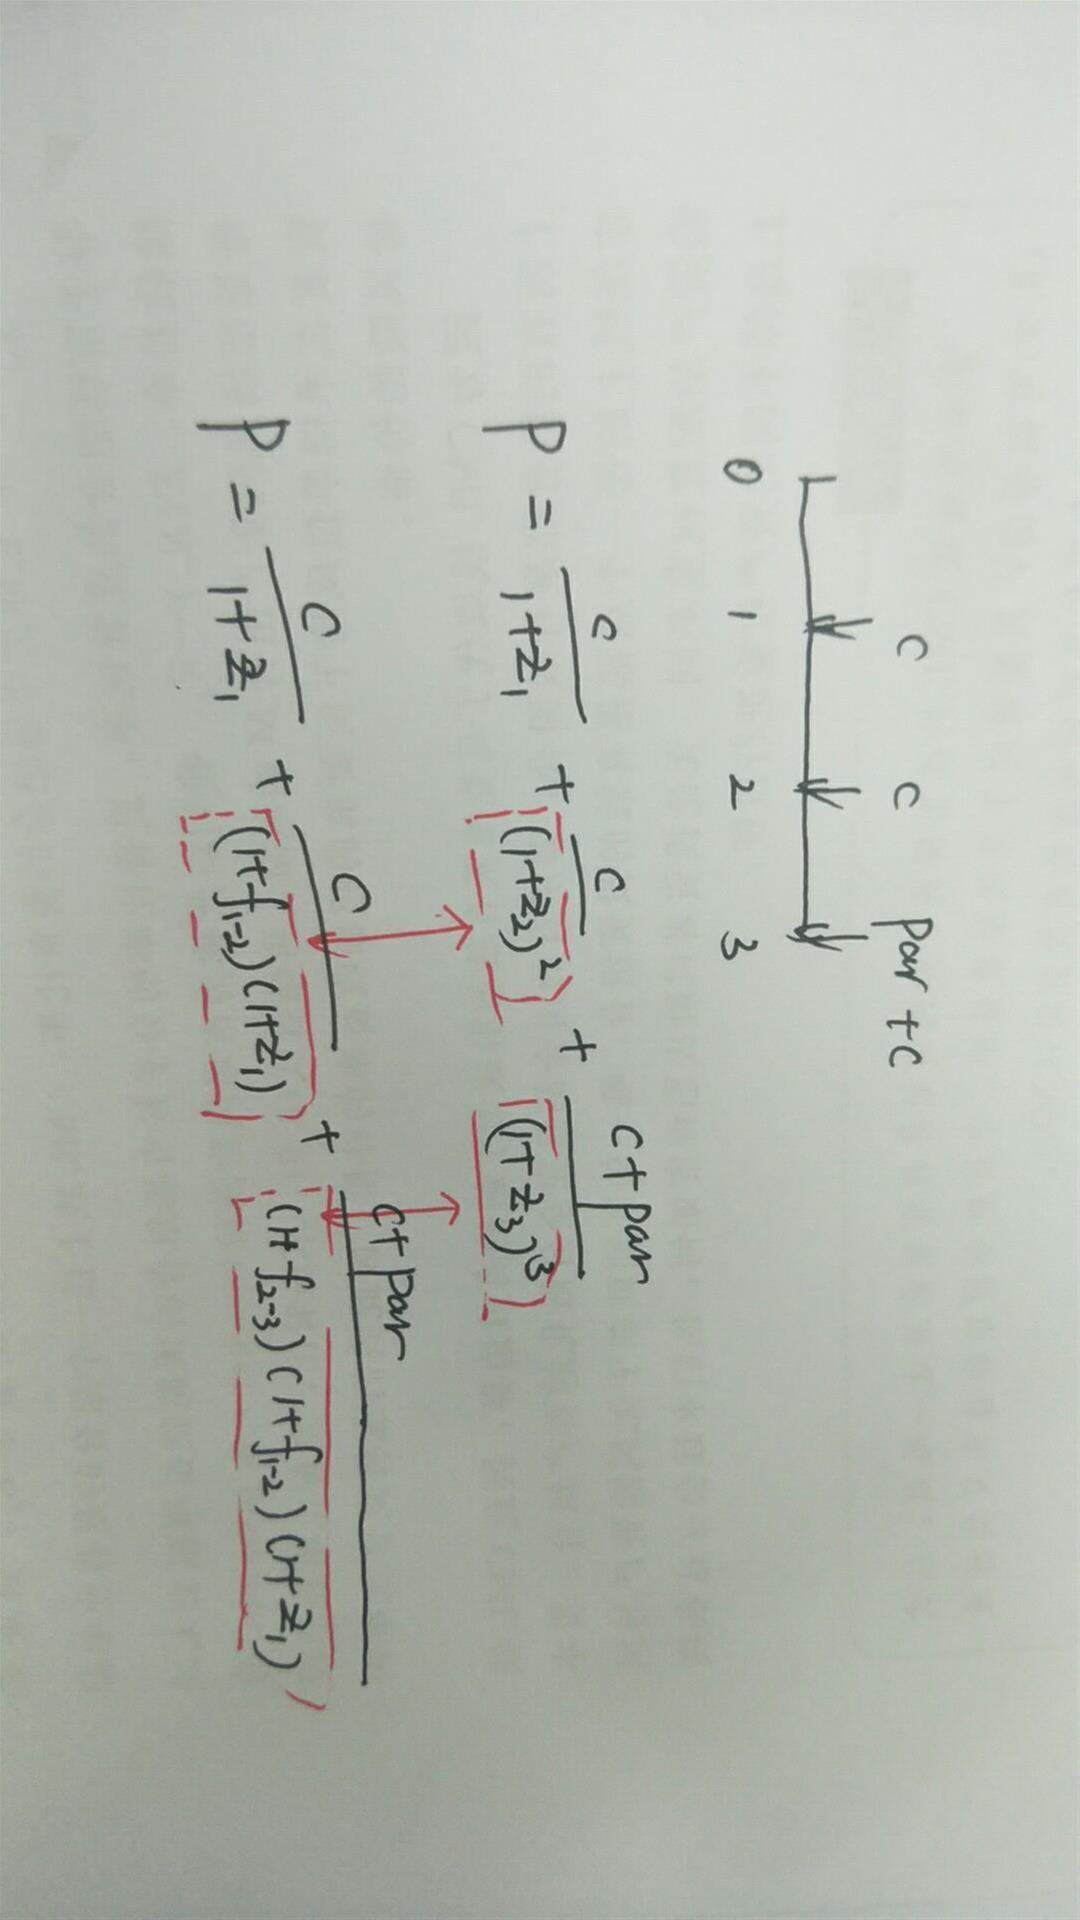 C C par+C
0 1 2 3
P = \frac{C}{1+Z_1} + \frac{C}{(1+Z_2)^2} + \frac{C+par}{(1+Z_3)^3}
P = \frac{C}{1+Z_1} + \frac{C}{(1+f_{1-2})(1+Z_1)} + \frac{C+par}{(1+f_{2-3})(1+f_{1-2})(1+Z_1)}